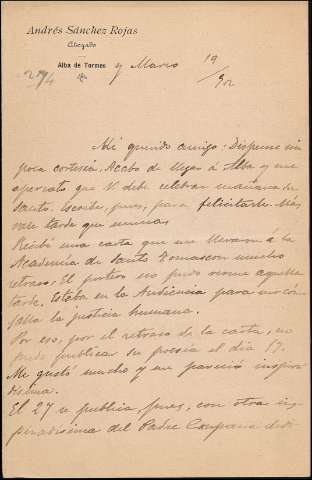 Andrés Sánchez Rojas
Abogado
Alba de Tormes y Marzo 19
/902
Mi querido amigo: Dispense mi
poca cortesía. Acabo de llegar á Alba y me
apercato que V. debe celebrar mañana su
santo. Escribo, pues, para felicitarle. Más
vale tarde que nunca.
Recibí una carta que me llevaron á la
Academia de Santo Tomas con mucho
retraso. El portero no pudo verme aquella
tarde. Estaba en la Audiencia para
la justicia humana.
Por eso, por el retraso de la carta, no
pude publicar su poesía el día 17.
Me gustó mucho y me pareció inspira
disima.
El 27 se publica, pues, con otra ins
piradisima del Padre